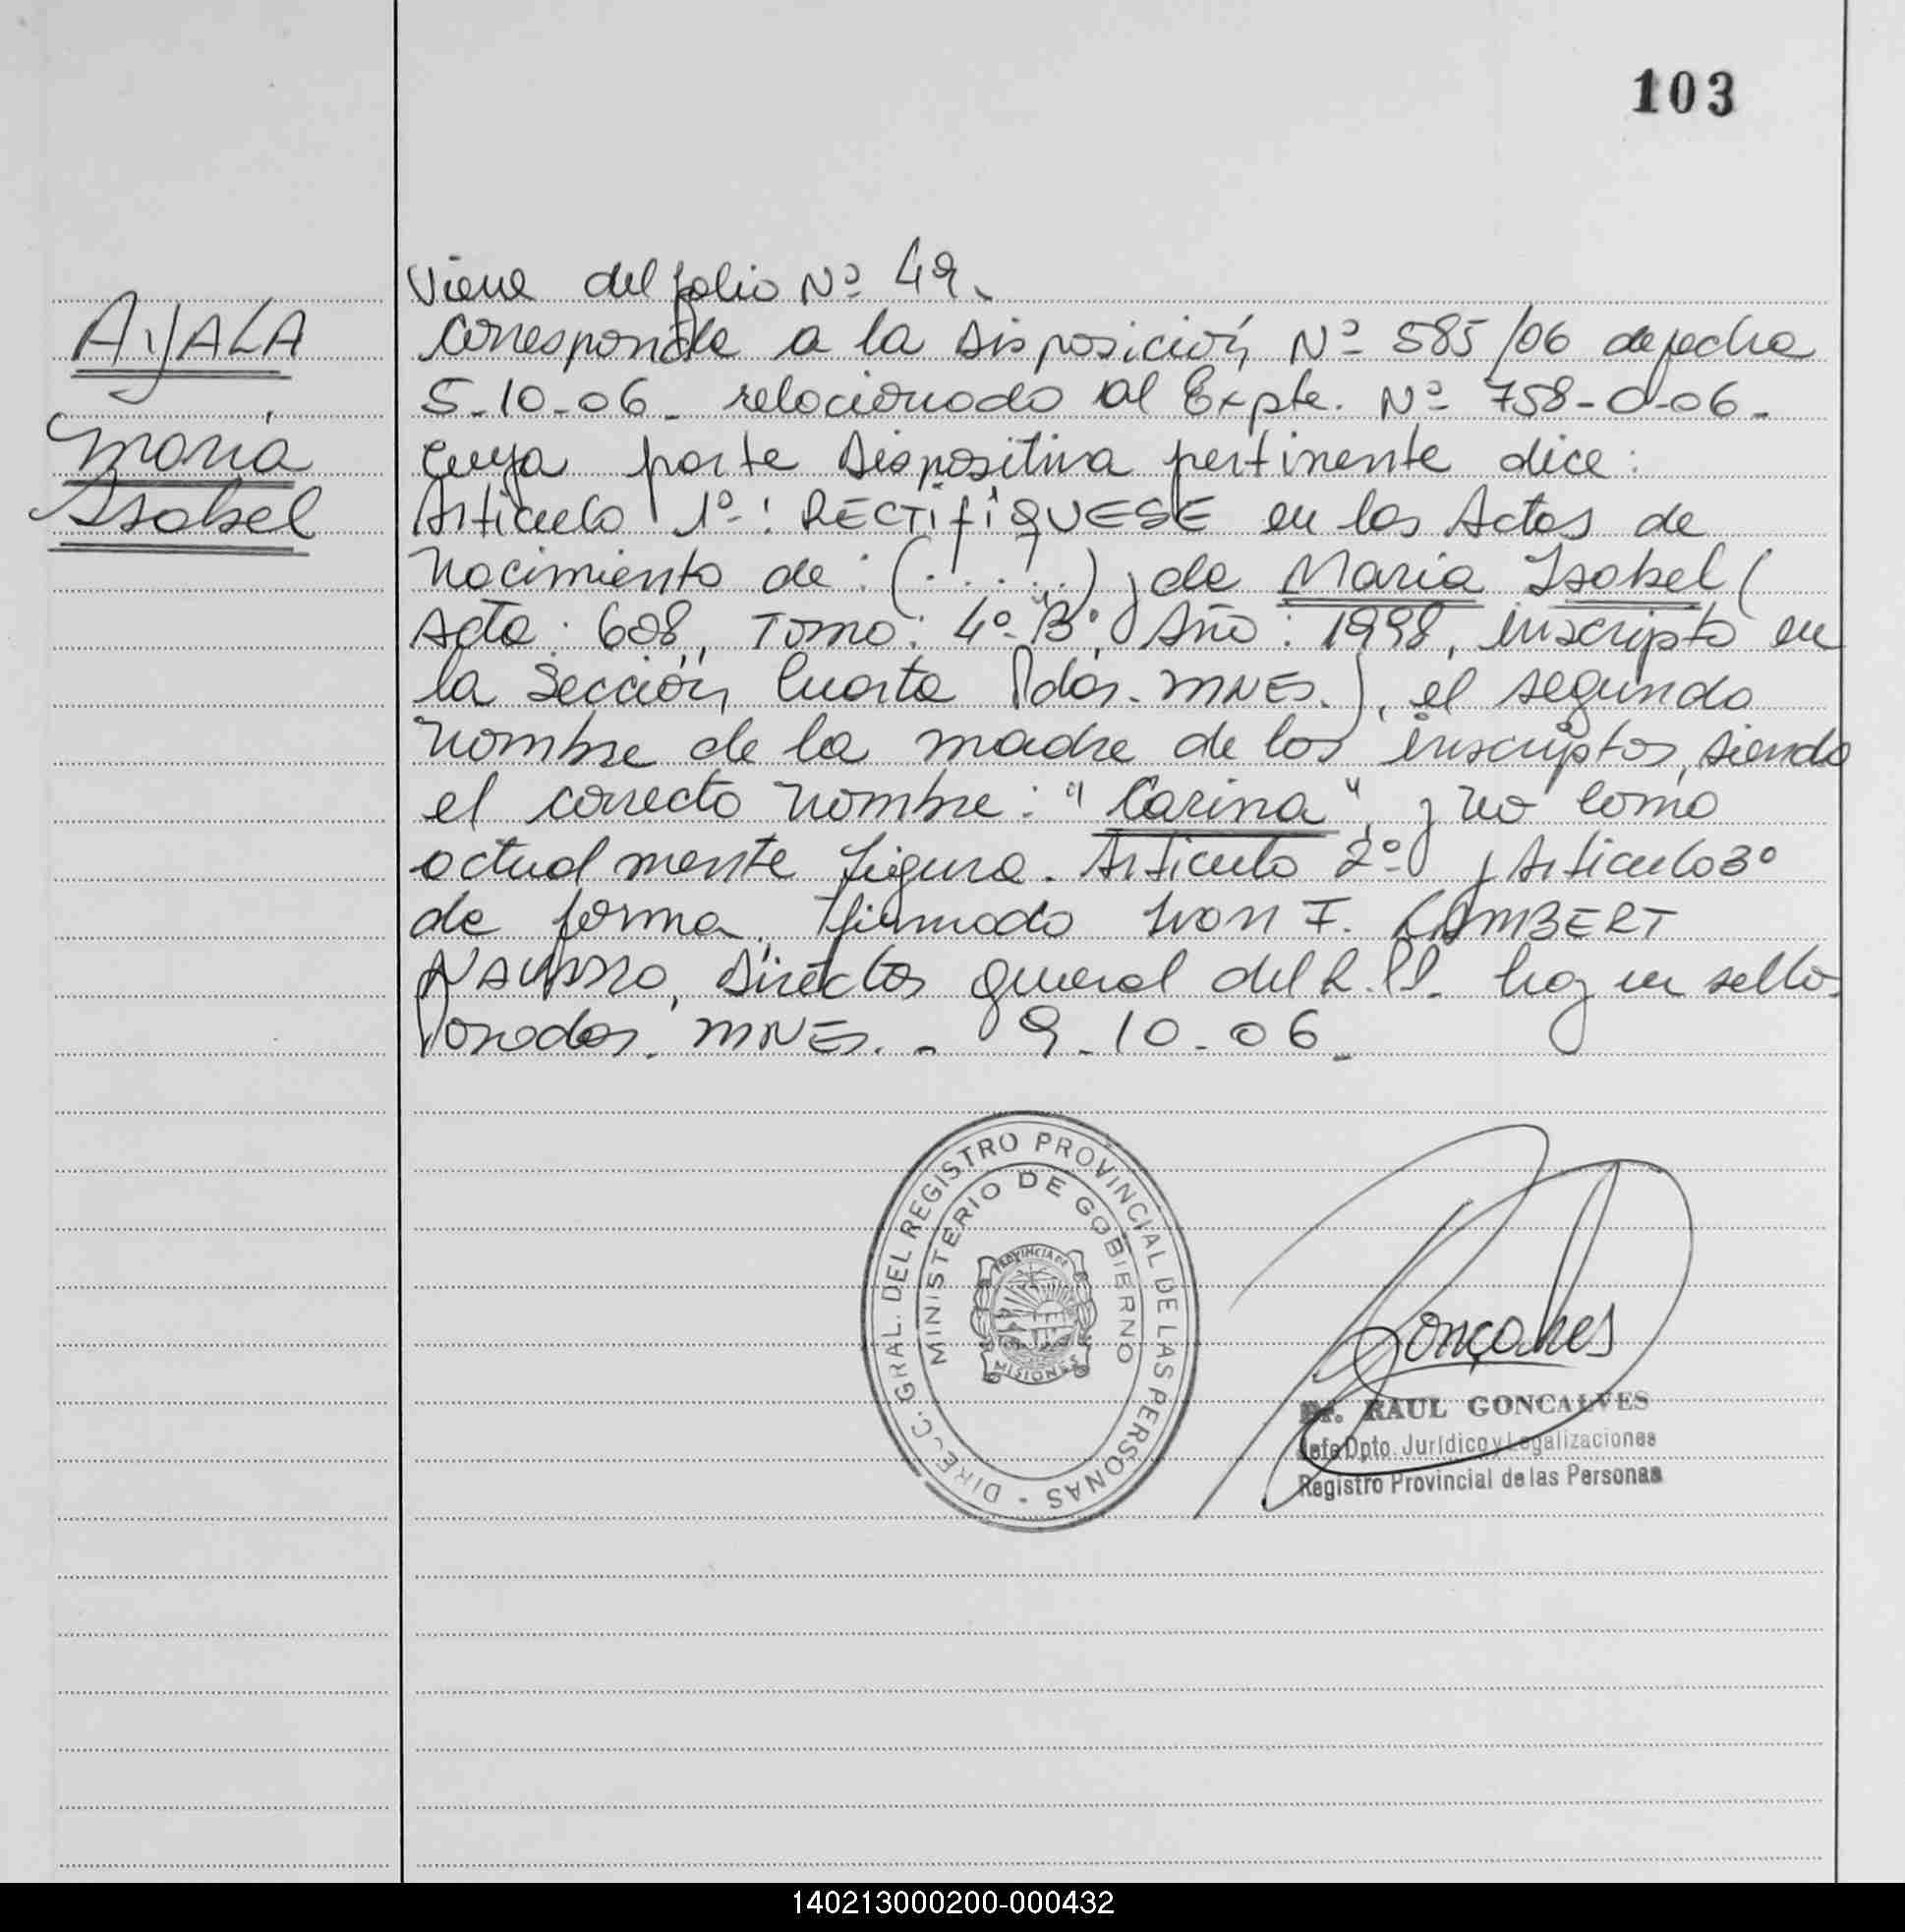 103
AYALA
María
Isabel
Viene del folio Nº 49.
Corresponde a la Disposición Nº 585/06 de fecha
5-10-06- relacionado al Expte. Nº 758-O-06-
cuya parte Dispositiva pertinente dice:
Artículo 1º: RECTIFIQUESE en las Actas de
Nacimiento de: (......) y de Maria Isabel (
Acta: 608, Tomo: 4º "B", Año: 1998, inscripta en
la Sección Cuarta Pdas. MNES.), el segundo
nombre de la madre de los inscriptos, siendo
el correcto nombre: "Carina" y no como
actualmente figura. Artículo 2º y Artículo 3º
de forma. Firmado Ivan F. LAMBERT
NAVARRO, Director General del R.P.P. hay un sello.
Posadas. MNES. - 9-10-06-
DIRECC. GRAL. DEL REGISTRO PROVINCIAL DE LAS PERSONAS -
MINISTERIO DE GOBIERNO
PROVINCIA DE
MISIONES
Gonçalves
Dr. RAUL GONCALVES
Jefe Dpto. Jurídico y Legalizaciones
Registro Provincial de las Personas
140213000200-000432